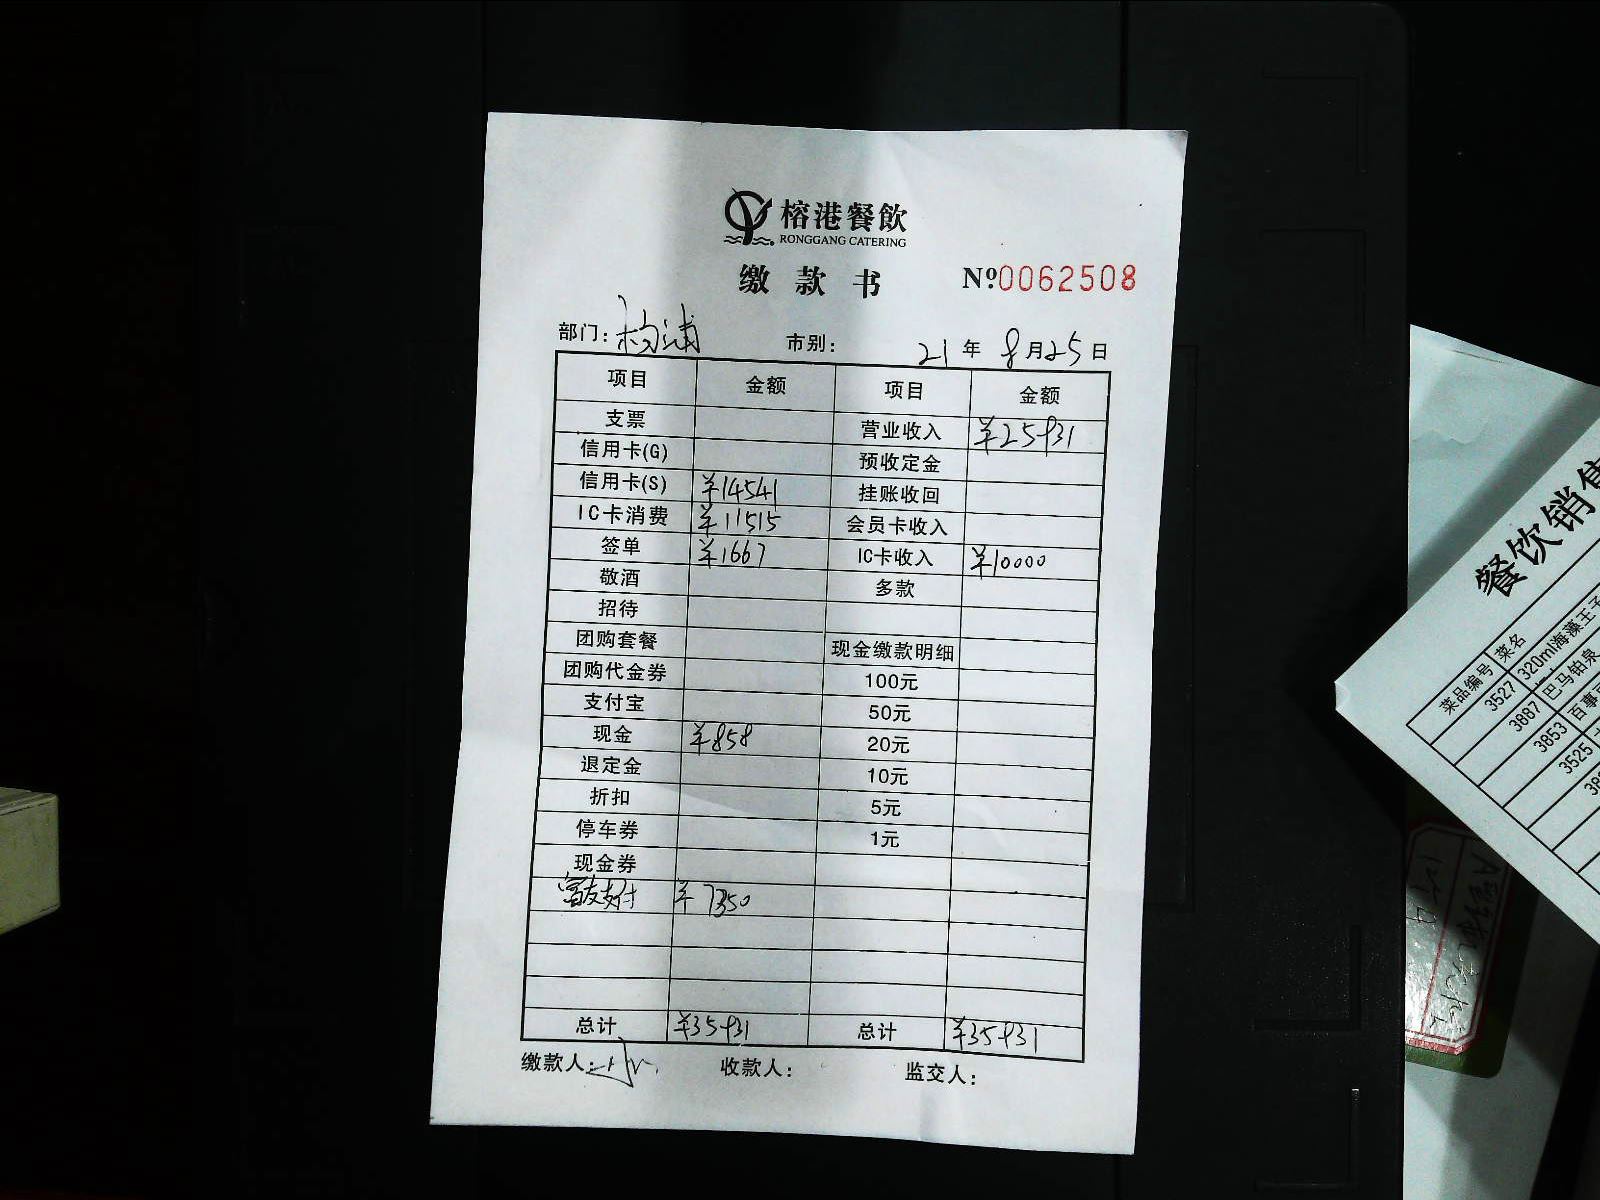 榕港餐飲
RONGGANG CATERING
缴款书 №0062508
部门：杨浦 市别： 21年8月25日
项目 金额 项目 金额
支票 营业收入 ¥25931
信用卡(G) 预收定金
信用卡(S) ¥14541 挂账收回
IC卡消费 ¥11515 会员卡收入
签单 ¥1667 IC卡收入 ¥10000
敬酒 多款
招待
团购套餐 现金缴款明细
团购代金券 100元
支付宝 50元
现金 ¥858 20元
退定金 10元
折扣 5元
停车券 1元
现金券
富友支付 ¥7350
总计 ¥35931 总计 ¥35931
缴款人： 收款人： 监交人：
餐饮销售
菜品编号 菜名
3527 320ml海藻王子
3887 巴马铂泉
3853 百事
3525